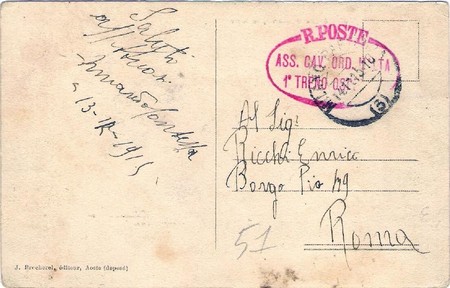 Saluti
affettuosi
Armando
13-12-1915
R.POSTE
ASS. CAV. ORD. MALTA
1° TRENO OSP.
Al Sigr
Ricchi Enrico
Borgo Pio 49
Roma
51
J. Brocherel, éditeur, Aosta (déposé)